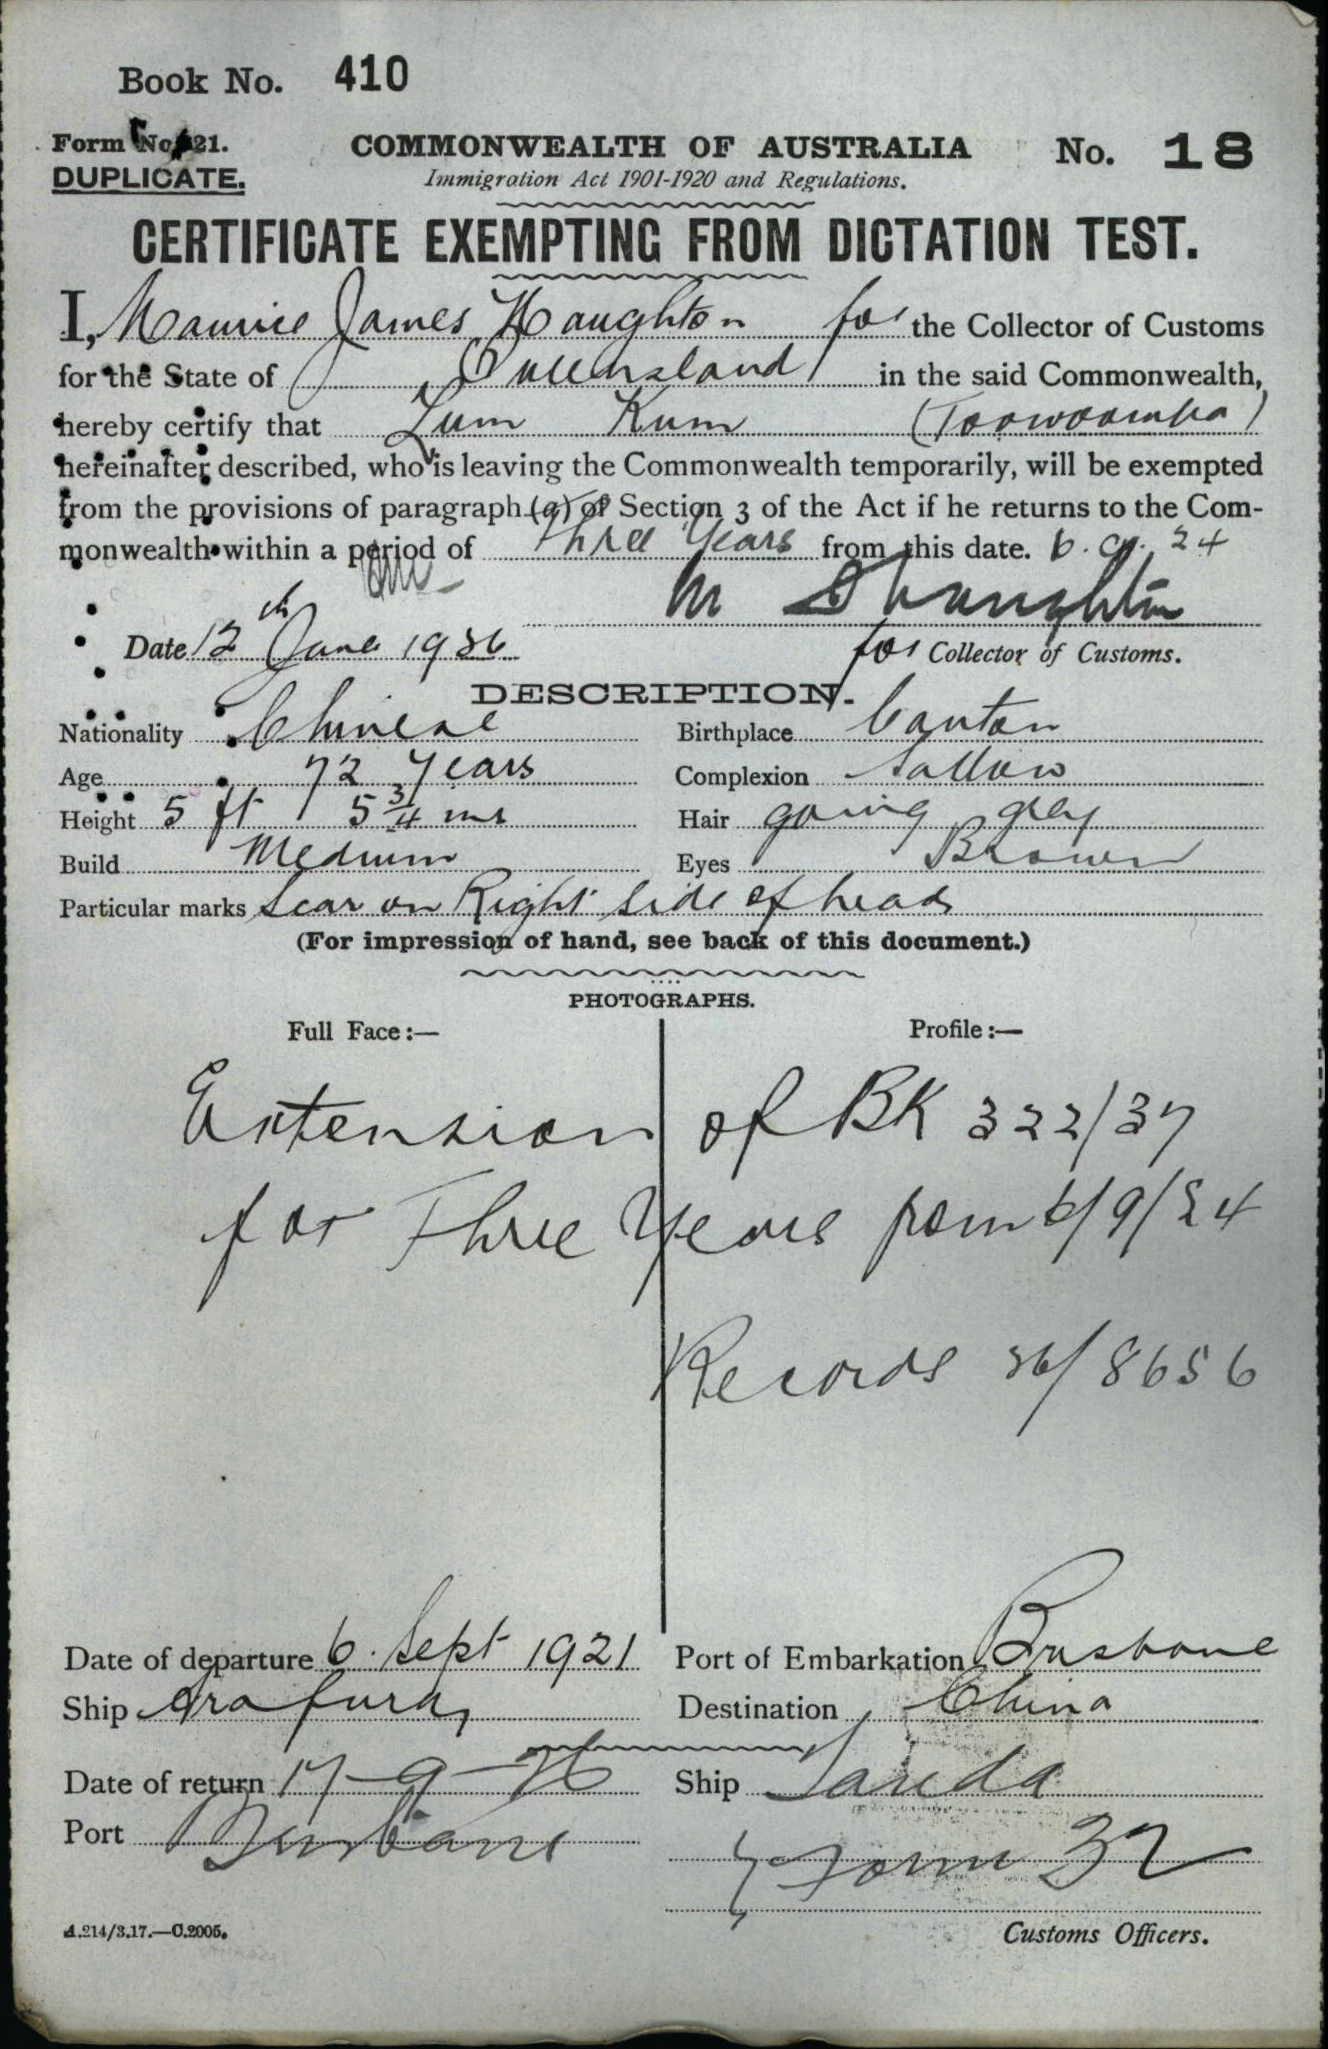 Book No. 410
Form No. 21.
COMMONWEALTH OF AUSTRALIA
No. 18
DUPLICATE.
Immigration Act 1901-1920 and Regulations.
CERTIFICATE EXEMPTING FROM DICTATION TEST.
I, Maurice James Haughton for the Collector of Customs
for the State of Queensland in the said Commonwealth,
hereby certify that Lum Kum (Toowoomba)
hereinafter described, who is leaving the Commonwealth temporarily, will be exempted
from the provisions of paragraph (a) of Section 3 of the Act if he returns to the Com-
monwealth within a period of three Years from this date. 6. 9. 24
Date 12th June 1926
for Collector of Customs.
DESCRIPTION.
Nationality Chinese Birthplace Canton
Age 72 Years Complexion Sallow
Height 5 ft 5 3/4 ins Hair going grey
Build Medium Eyes Brown
Particular marks Scar on Right side of head
(For impression of hand, see back of this document.)
PHOTOGRAPHS.
Full Face:— Profile:—
Extension of BK 322/37
for Three Years from 6/9/24
Records 26/8656
Date of departure 6. Sept 1921 Port of Embarkation Brisbane
Ship Arafura Destination China
Date of return 17-9-26 Ship Tanda
Port Brisbane
Form 32
A.214/3.17.—C.2005. Customs Officers.